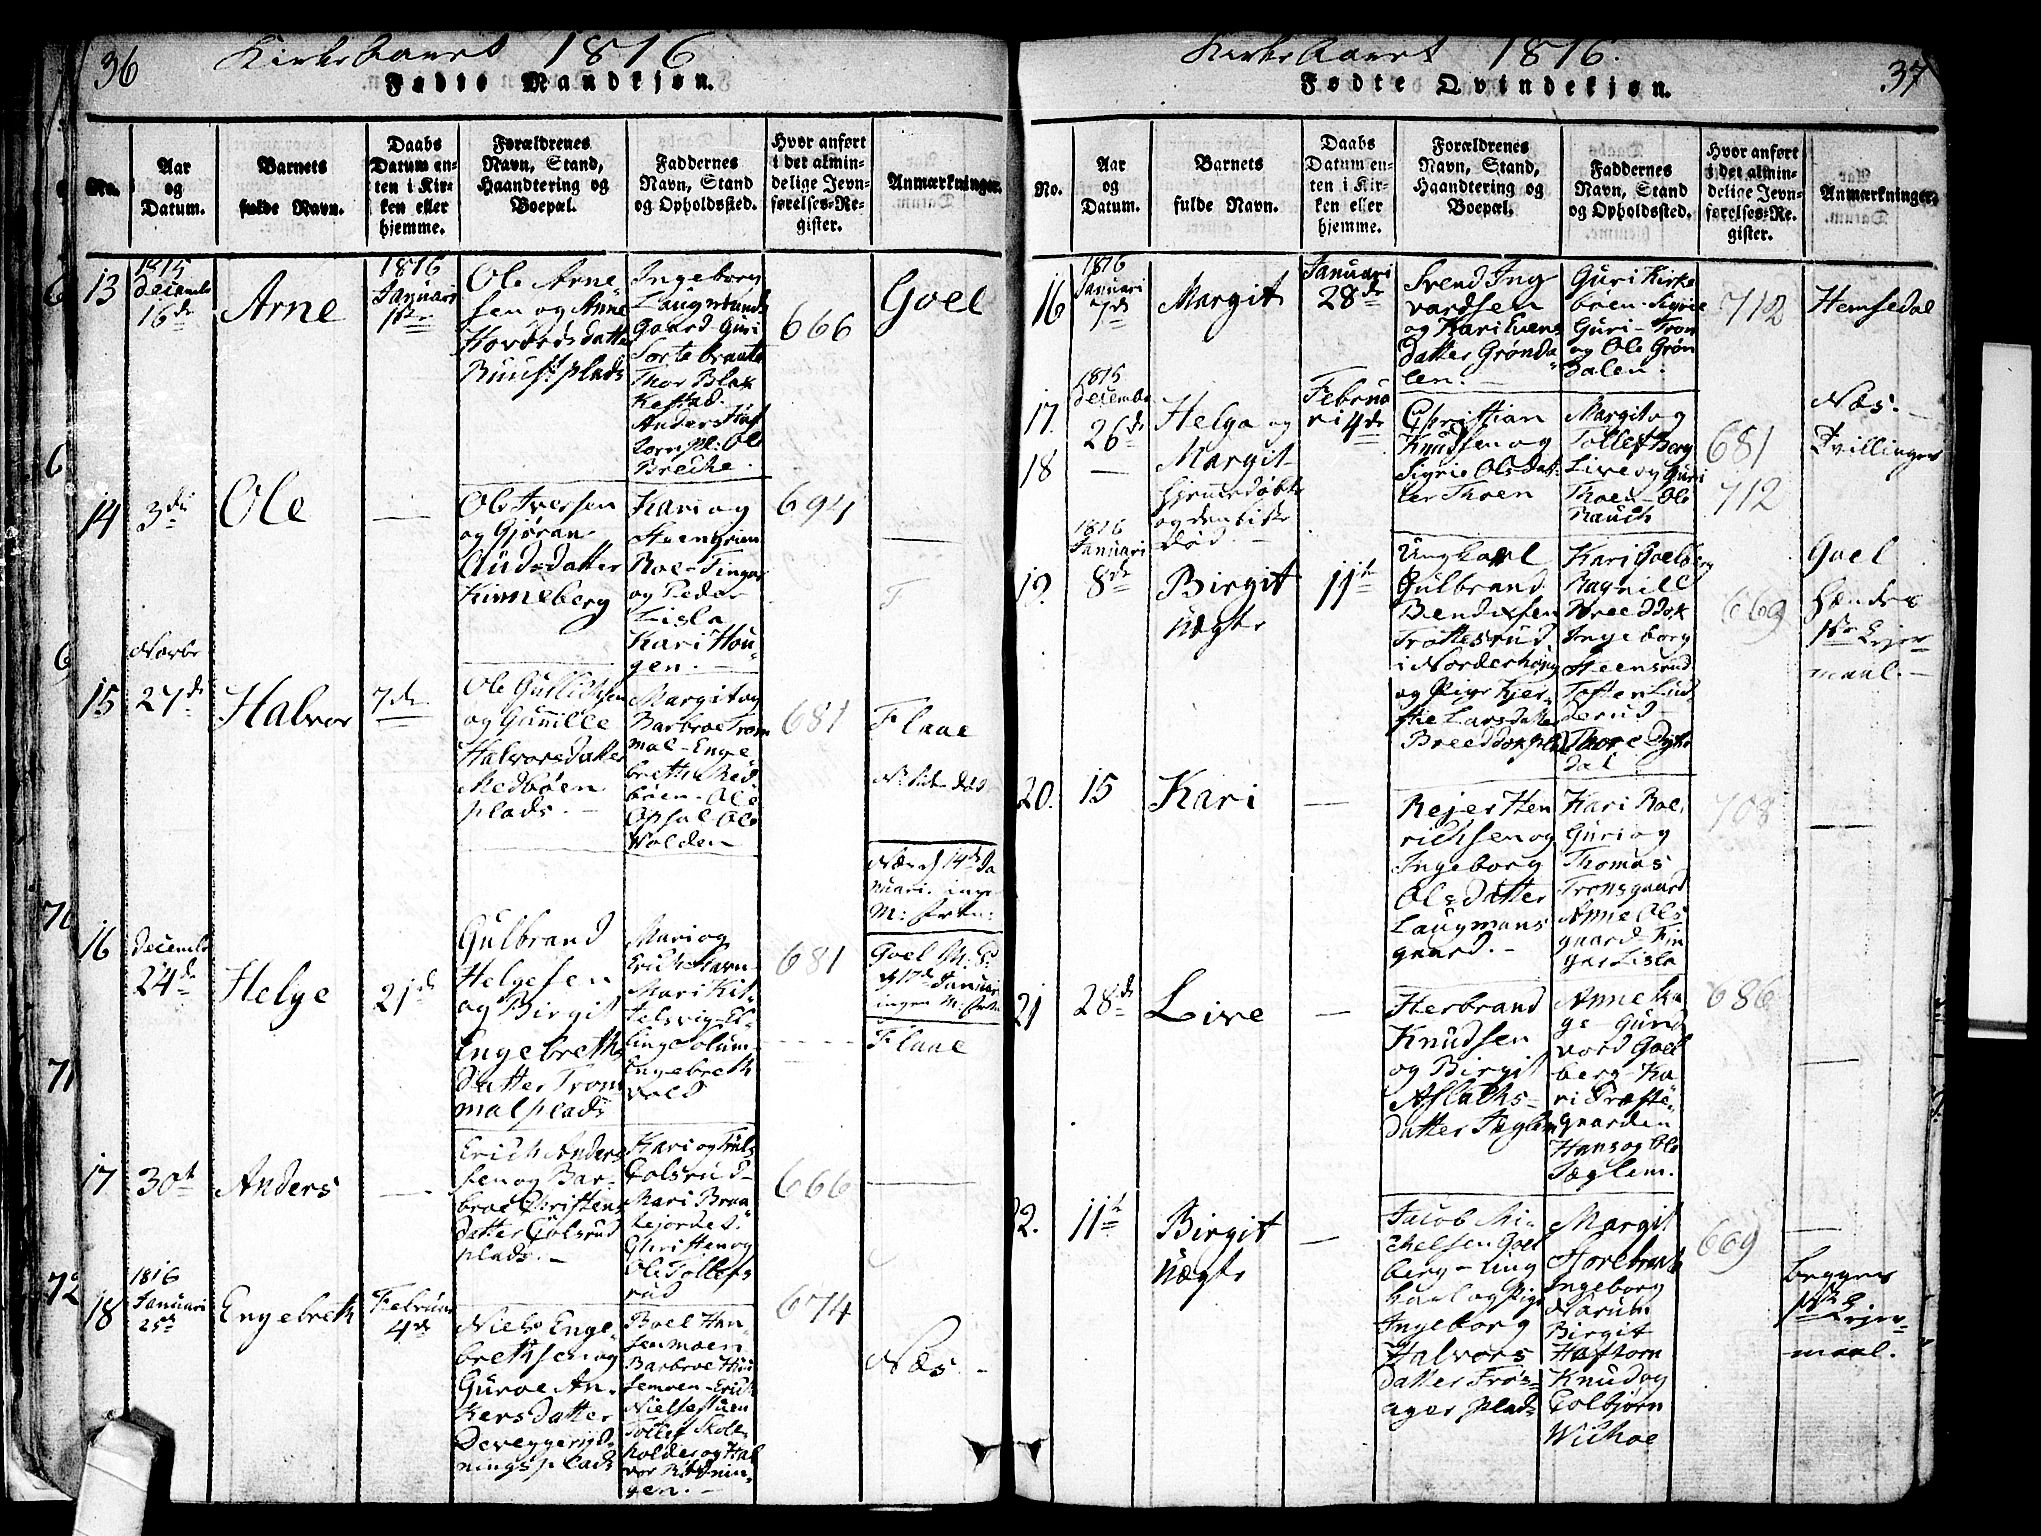 36
Kirke Aaret 1816
Fødte Mandkjøn.
No.
Aar
og
Datum.
Barnets
fulde Navn.
Daabs
Datum en-
ten i Kir-
ken eller
hjemme.
Forældrenes
Navn, Stand,
Haandtering og
Boepæl.
Faddernes
Navn, Stand
og Opholdssted.
Hvor anført
i det almin-
delige Jevn-
førelses-Re-
gister.
Anmærkninger.
13
1815
Decembr
16de
Arne
1816
Januari
1ste
Ole Arne
sen og Anne
Hovordsdatter
Ruust plads
Ingeborg
Laugmands
Gaard Guri
Sortebraate
Thor Blak
kestad.
Anders Haf
torn pl: Ole
Breche.
666
Goel
14
3die
Ole
—
Ole Iversen
og Gjøran
Auds datter
Kinneberg
Kari og
Steengrim
Roe- Finger
og Peder
Lisla
Kari Hou
gen.
694
—
15
Novbr
27de
Halvor
7de
Ole Gullichsen
og Gunille
Halvorsdatter
Medbøen
plads.
Margit og
Barbroe Trom
mal- Enge
breth Med
bøen- Ole
Opsal- Ole
Wolden
681
Flaae
16
Decembr
24de
Helge
21de
Gulbrand
Helgesen
og Birgit
Engebreths
datter Trom
mal plads
Mari og
Erich Havn-
Mari Kit-
telsvig- El-
ling Solum-
Engebreth
Wold
681
Flaae
17
30te
Anders
—
Erich Anders
sen og Bar-
broe Christens
datter Golsrud
plads.
Kari og Truls
Golsrud-
Mari Braa-
tejordet.
Christen og
Ole Tollefs
rud
666
—
18
1816
Januari
25de
Engebreth
Februar
4de
Niels Enge-
brethsen og
Guroe An-
kersdatter
Deveggeryd-
nings plads
Boel Han-
senmoen
Barbroe Hans
semoen- Erich
Nielsestuen
Tollef Skole-
holder og Hal
vor Rødnin-
gen.
674
Næs.
37
Kirke Aaret 1816.
Fødte Qvindekjøn.
No.
Aar
og
Datum.
Barnets
fulde Navn.
Daabs
Datum en-
ten i Kir-
ken eller
hjemme.
Forældrenes
Navn, Stand,
Haandtering og
Boepæl.
Faddernes
Navn, Stand
og Opholdssted.
Hvor anført
i det almin-
delige Jevn-
førelses-Re-
gister.
Anmærkninger.
16
1816
Januari
7de
Margit
Januari
28de
Svend Ing
vardsen
og Kari Evens
datter Grønda
len.
Guri Kirke
broen- Sigrie
Guri- Tron
og Ole Grøn
dalen.
712
Hemsedal
17.
1815
Decembr
26de
Helga og
Februa
ri 4de
18
—
Margit
hjemmedøbt
og den sidste
død.
Christian
Knudsen og
Sigrie Olsdat-
ter Thoen
Margit og
Tollef Berg
Live og Guri
Thoen- Ole
Rauch
681
712
Næs.
Tvillinger
19.
1816
Januari
8de
Birgit
Uægte
11te
Ungkarl
Gulbrand
Bendixsen
Trøttesrud
i Norderhoug
og Pige Kjer-
stie Larsdatter
Breeddok pl
Kari Goelberg
Ragnill
Breeddok
Ingeborg
Steensrud
Tosten Lud
derud-
Thore Dyke
dal
669
Goel
Hendes
1ste Leier-
maal.
20.
15
Kari
—
Rejer Hen
richsen og
Ingeborg
Olsdatter
Laugmans
gaard.
Kari Roe.
Guri og
Thomas
Tronsgaard
Anne Ols
gaard- Fin
ger Lisla
708
—
21
28de
Live
—
Herbrand
Knudsen
og Birgit
Aslachs-
datter Tæglem
Anne Ha
ge- Guri
Nord Goel
berg- Ka
ri Præste-
gaarden
Hans og Ole
Tæglem.
686
—
22.
11te
Birgit
Uægte
—
Jacob Mi-
chelsen Goel
berg- Ung
karl og Pige
Ingeborg
Halvors
datter Frøs-
ager plads
Margit
Horebraate
Ingeborg
Narum
Birgit
Haftorn
Knud og
Golbjørn
Wichoe
669
—
begges
1ste Leier-
maal.